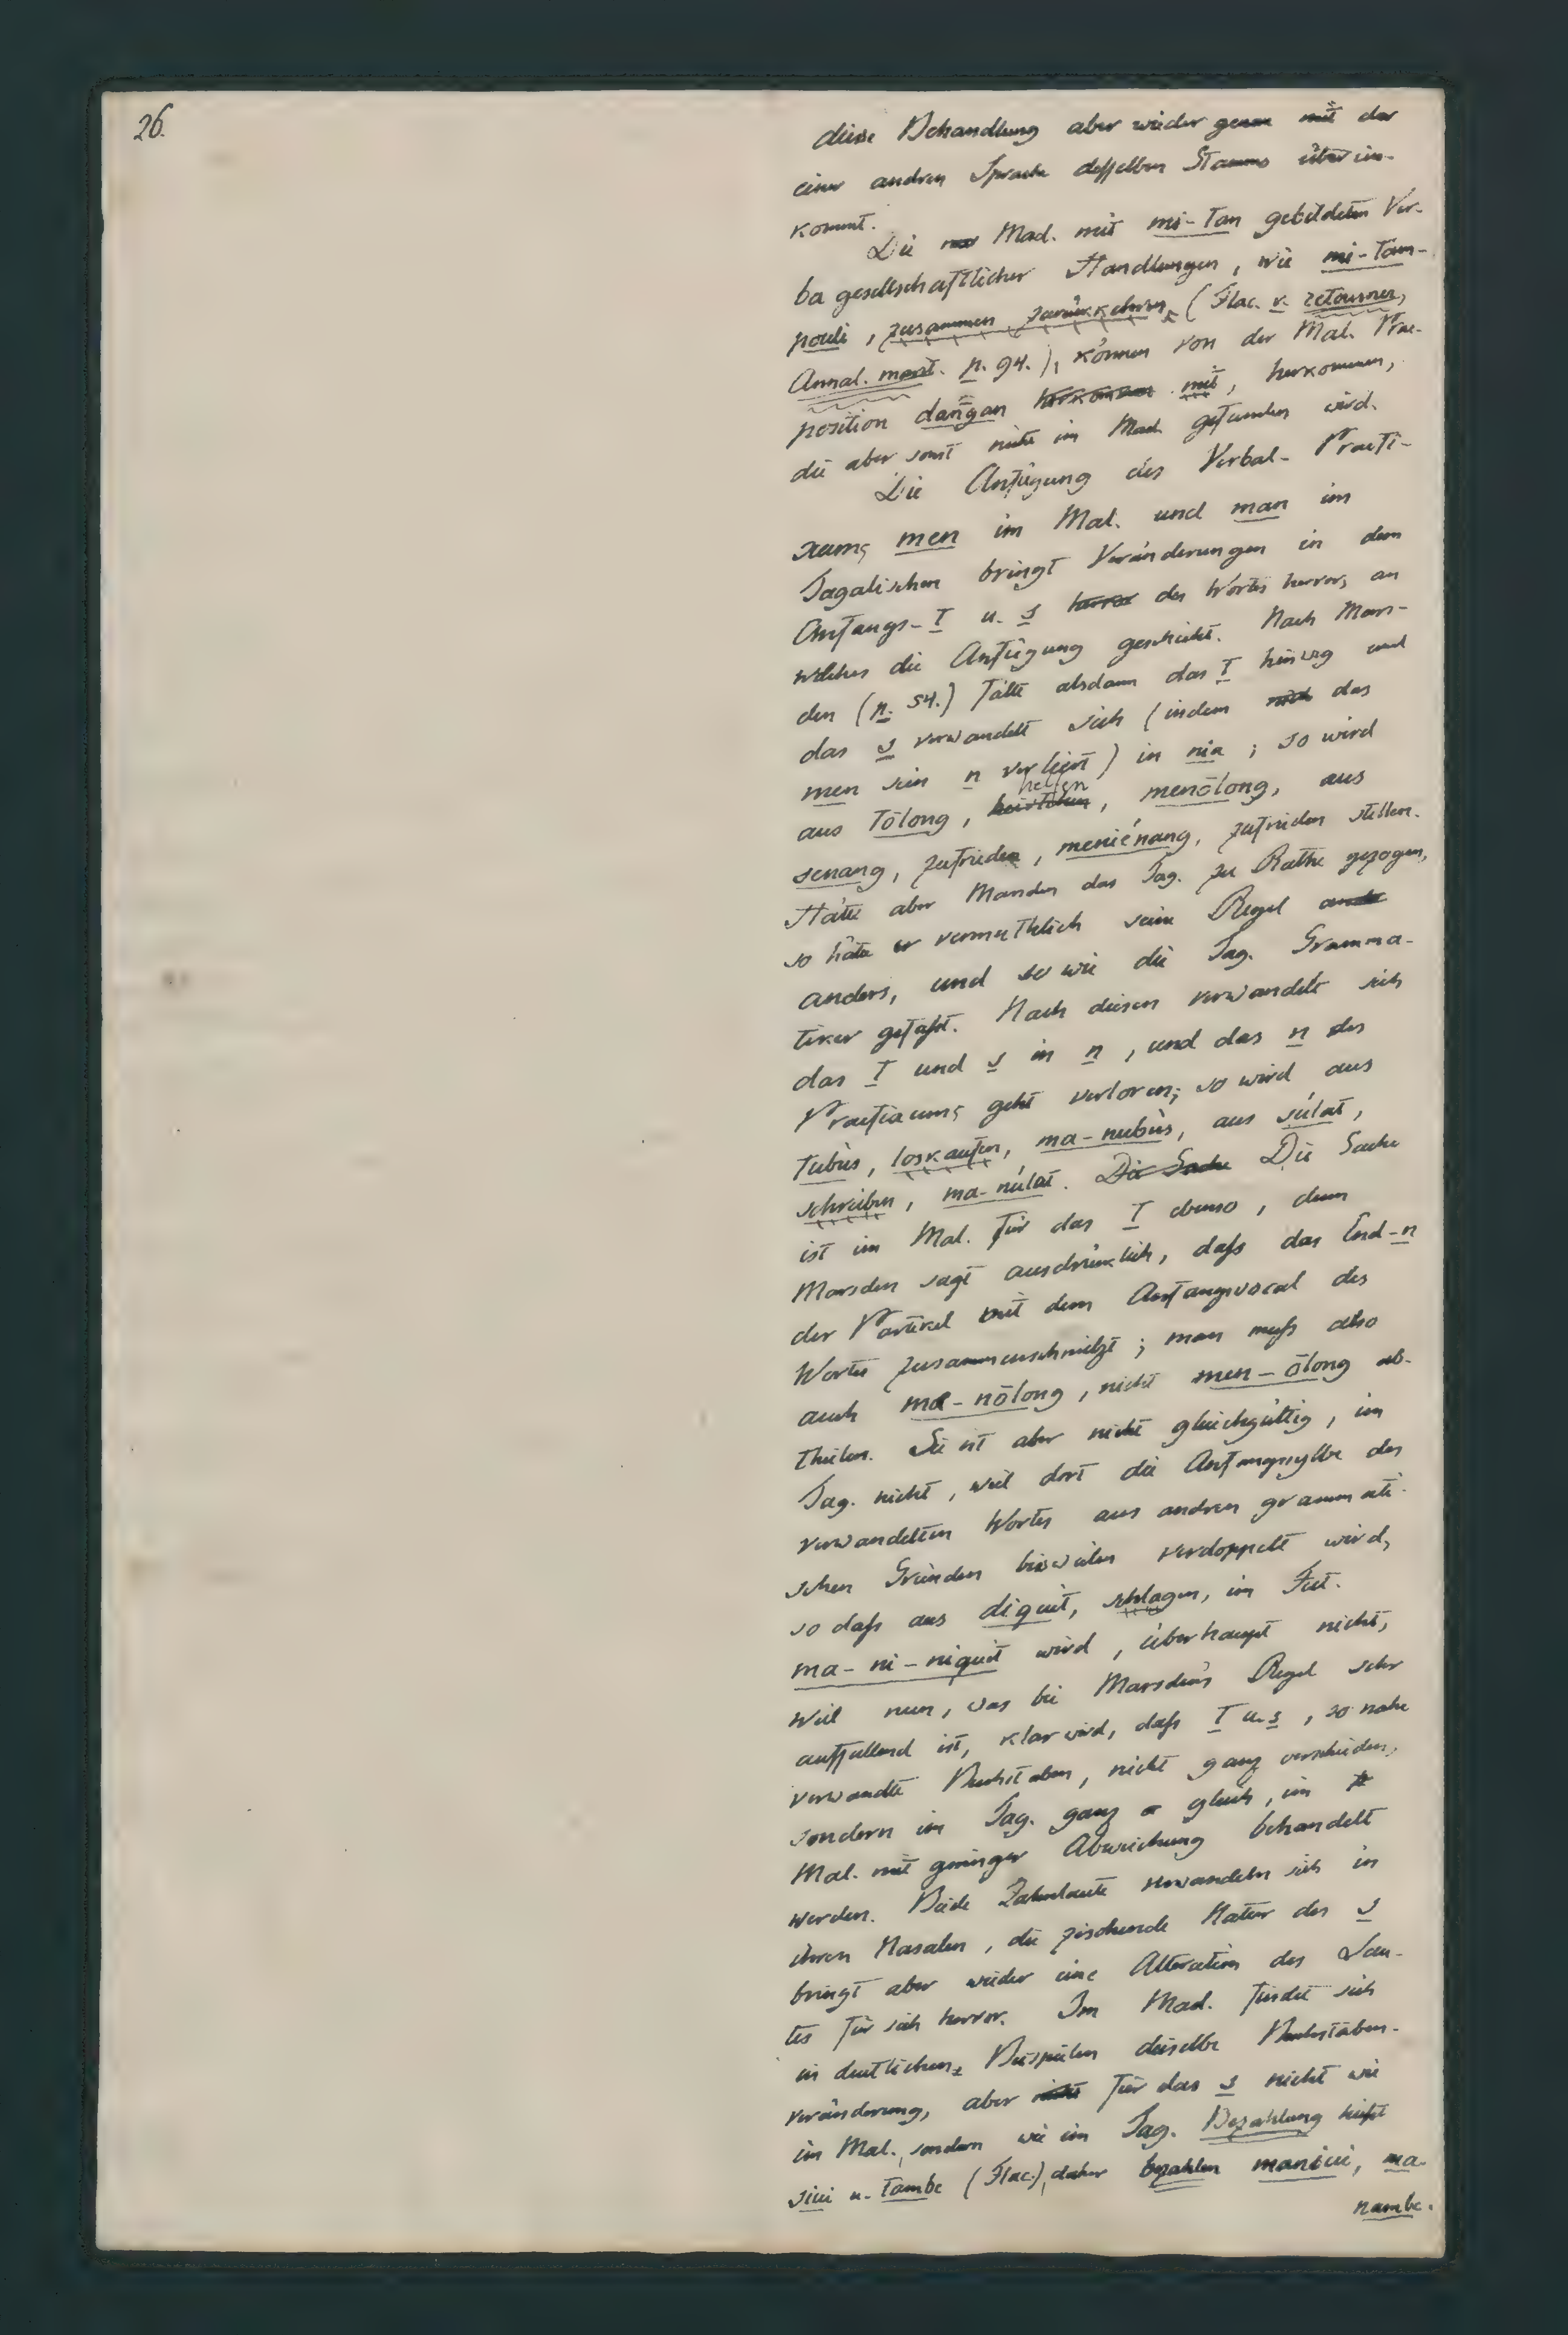 26.
diese Behandlung aber wieder genau mit der
einer andren Sprache desselben Stamms überein-
kommt.
Die Mad. mit mi-tan gebildeten Ver-
ba gesellschaftlicher Handlungen, wie mi-tam-
pouli, zusammen zurükkehren (Flac. v. retourner,
Annal. marit. p. 94.), können von der Mal. Prae-
position dangan mit, herkommen,
die aber sonst nicht im Mad. gefunden wird.
Die Anfügung des Verbal-Praefi-
xums men im Mal. und man im
Tagalischen bringt Veränderungen in dem
Anfangs-t u. s des Wortes hervor, an
welches die Anfügung geschieht. Nach Mars-
den (p. 54.) fällt alsdann das t hinweg und
das s verwandelt sich (indem das
men sein n verliert) in nia; so wird
aus tōlong, helfen, menōlong, aus
senang, zufrieden, meniénang, zufrieden stellen.
Hätte aber Marsden das Tag. zu Rathe gezogen,
so hätte er vermuthlich seine Regel
anders, und so wie die Tag. Gramma-
tiker gefaßt. Nach diesen verwandelt sich
das t und s in n, und das n des
Praefixums geht verloren; so wird aus
tubùs, loskaufen, ma-nubùs, aus súlat,
schreiben, ma-núlat. Die Sache Die Sache
ist im Mal. für das t ebenso, denn
Marsden sagt ausdrüklich, daß das End-n
der Partikel mit dem Anfangsvocal des
Wortes zusammenschmilzt; man muß also
auch me-nōlong, nicht men-ōlong ab-
theilen. Sie ist aber nicht gleichgültig, im
Tag. nicht, weil dort die Anfangssylbe des
verwandelten Wortes aus andren grammati-
schen Gründen bisweilen verdoppelt wird,
so daß aus diquit, schlagen, im Fut.
ma-ni-niquit wird, überhaupt nicht,
weil nun, was bei Marsden's Regel sehr
auffallend ist, klar wird, daß t u. s, so nahe
verwandte Buchstaben, nicht ganz verschieden,
sondern im Tag. ganz gleich, im
Mal. mit geringer Abweichung behandelt
werden. Beide Zahnlaute verwandeln sich in
ihren Nasalen, die zischende Natur des s
bringt aber wieder eine Alteration des Lau-
tes für sich hervor. Im Mad. findet sich
in deutlichen Beispielen dieselbe Buchstaben-
veränderung, aber nicht für das s nicht wie
im Mal., sondern wie im Tag. Bezahlung heißt
sivi u. tambe (Flac.), daher bezahlen manivi, ma-
nambe.